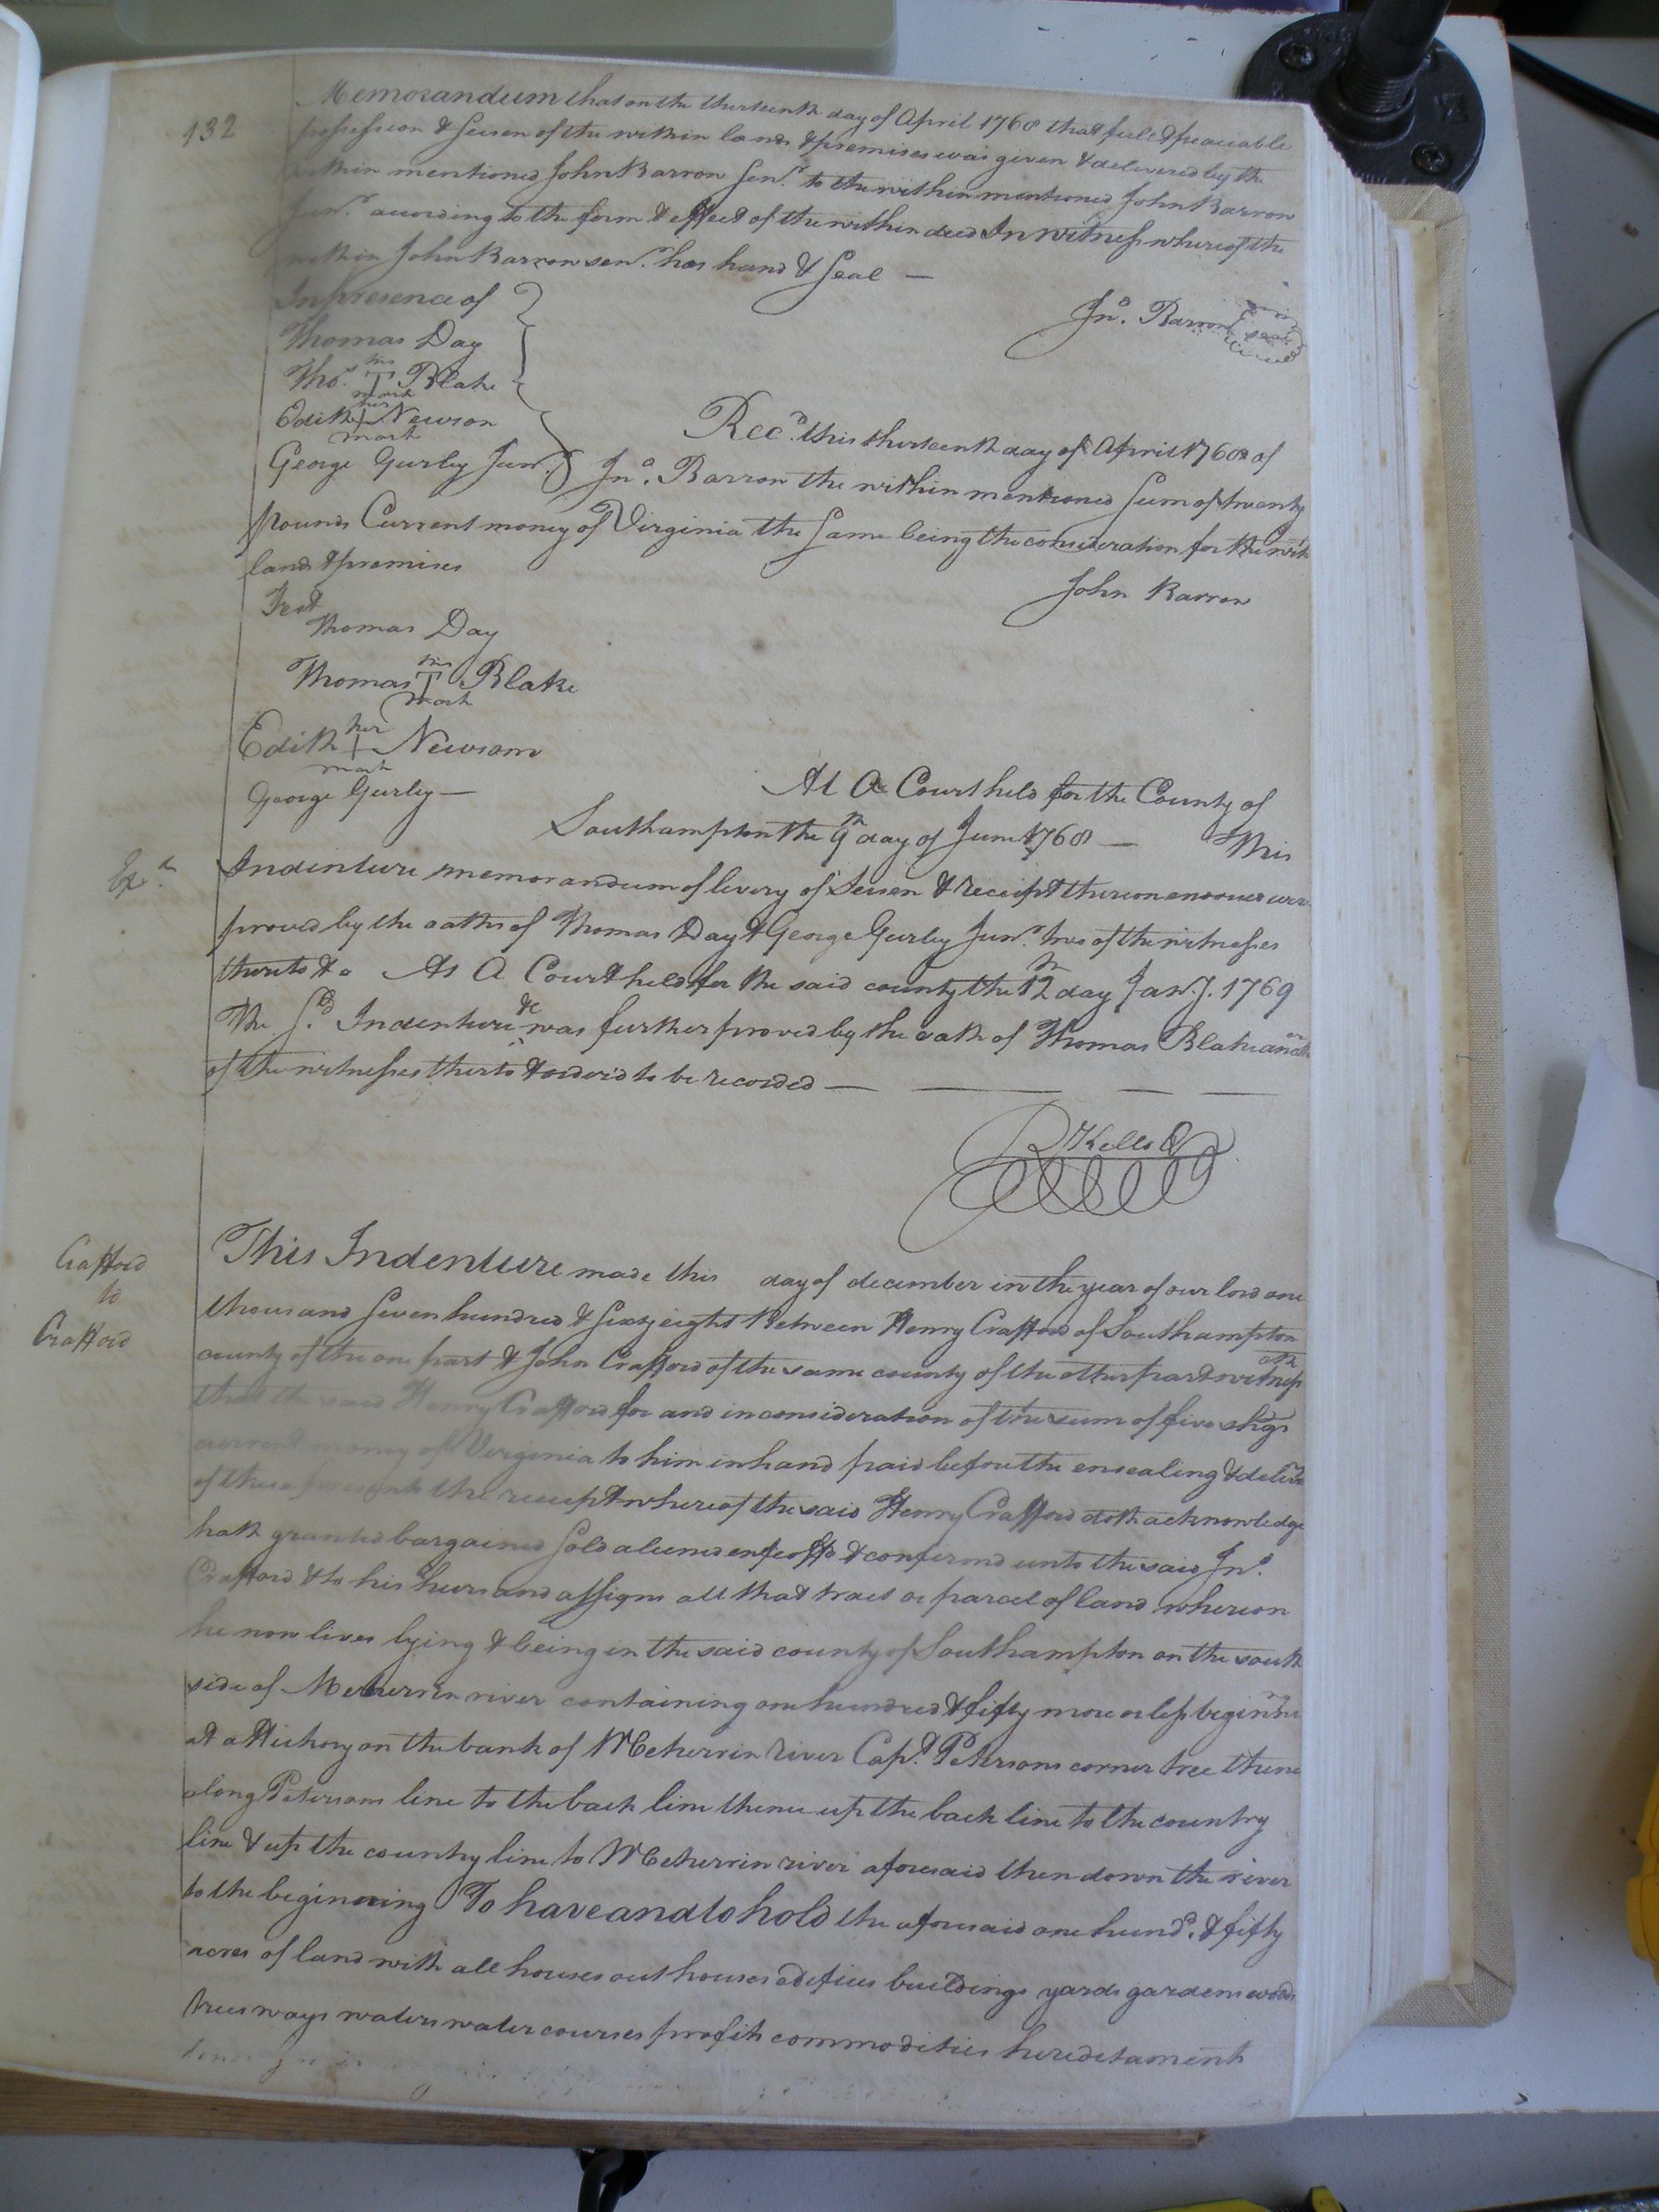 132
Memorandum that on the thirteenth day of April 1768 that full & peaceable
possession & Seisen of the within lands & premises was given & delivered by the
within mentioned John Barron Senr. to the within mentioned John Barron
Junr. according to the form & effect of the within deed In Witness whereof the
within John Barron senr. has hand & Seal —
In presence of
Jno. Barron seal
Thomas Day
Thos. his T mark Blake
Edith her + mark Newsom
Recd. this thirteenth day of April 1768 of
George Gurley Junr.
Jno. Barron the within mentioned Sum of twenty
pounds Current money of Virginia the Same being the consideration for the with
land & premises
John Barron
Test
Thomas Day
Thomas his T mark Blake
Edith her + mark Newsom
George Gurley —
At A Court held for the County of
Southampton the 9th day of June 1768 — This
Exd.
Indenture memorandum of livery of Seisen & receipt thereon endorsed were
proved by the oaths of Thomas Day & George Gurley Junr. two of the witnesses
thereto & a At A Court held for the said county the 12th day Jany. 1769
The Sd. Indenture &c was further proved by the oath of Thomas Blake another
of the witnesses thereto & orderd to be recorded —
R Kello
Crafford
to
Crafford
This Indenture made this day of december in the year of our lord one
thousand Seven hundred & Sixty eight Between Henry Crafford of Southampton
county of the one part & John Crafford of the same county of the other part witnesseth
that the said Henry Crafford for and in consideration of the sum of five shgs
current money of Verginia to him in hand paid before the ensealing & delivr
of these presents the receipt whereof the said Henry Crafford doth acknowledge
hath granted bargained Sold aliened enfeoffd & confirmd unto the said Jno.
Crafford & to his heirs and assigns all that tract or parcel of land whereon
he now lives lying & being in the said county of Southampton on the south
side of Meherrin river containing one hundred & fifty more or less beginning
at a Hickory on the bank of Meherrin river Capt. Petersons corner tree thence
along Petersons line to the back line thence up the back line to the country
line & up the country line to Meherrin river aforesaid then down the river
to the beginning To have and to hold the aforesaid one hundd. & fifty
acres of land with all houses out houses edifices buildings yards gardens woods
trees ways waters water courses profits commodities hereditaments